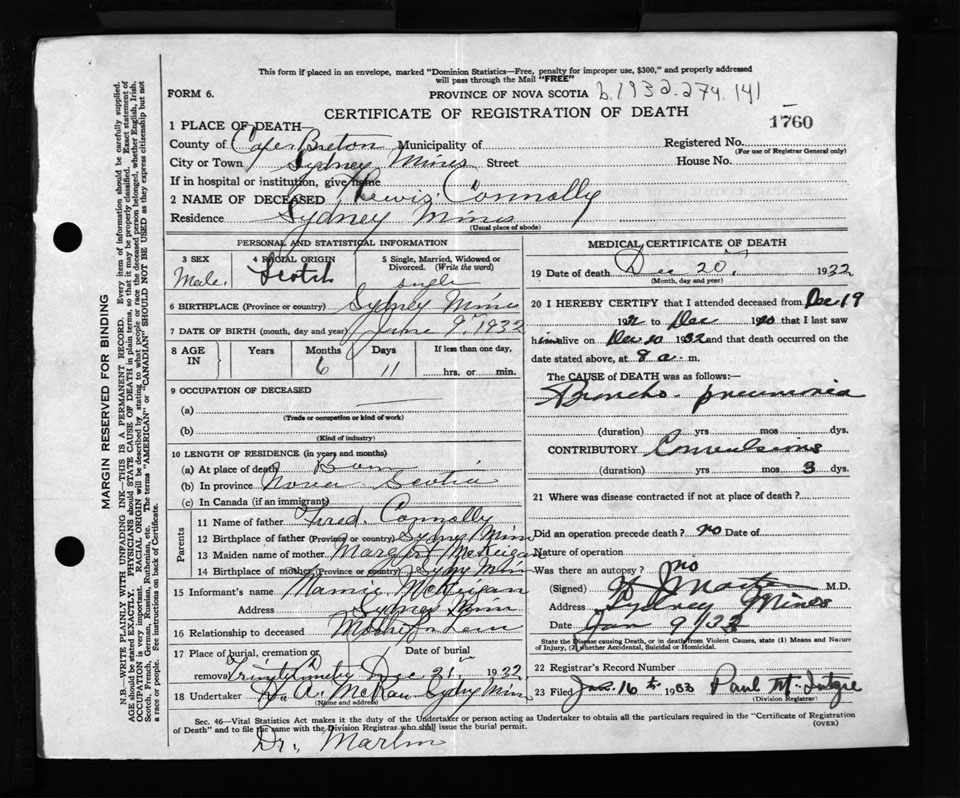 This form if placed in an envelope, marked "Dominion Statistics—Free, penalty for improper use, $300," and properly addressed
will pass through the Mail "FREE"
FORM 6.
PROVINCE OF NOVA SCOTIA b.1932.274.141
CERTIFICATE OF REGISTRATION OF DEATH
1760
1 PLACE OF DEATH—
County of Cape Breton Municipality of Registered No.
(For use of Registrar General only)
City or Town Sydney Mines Street House No.
If in hospital or institution, give name
2 NAME OF DECEASED Connolly
Residence Sydney Mines
(Usual place of abode)
PERSONAL AND STATISTICAL INFORMATION
3 SEX
Male.
4 RACIAL ORIGIN
Scotch
5 Single, Married, Widowed or
Divorced. (Write the word)
single
6 BIRTHPLACE (Province or country) Sydney Mines
7 DATE OF BIRTH (month, day and year) June 9. 1932
8 AGE IN
Years Months Days If less than one day,
6 11 hrs. or min.
9 OCCUPATION OF DECEASED
(a)
(Trade or occupation or kind of work)
(b)
(Kind of industry)
10 LENGTH OF RESIDENCE (in years and months)
(a) At place of death Born
(b) In province Nova Scotia
(c) In Canada (if an immigrant)
Parents
11 Name of father Fred. Connolly
12 Birthplace of father (Province or country) Sydney Mines
13 Maiden name of mother McKeigan
14 Birthplace of mother (Province or country) Sydny Min
15 Informant's name Mamie McKeigan
Address Sydney Mines
16 Relationship to deceased Mother in Law
17 Place of burial, cremation or removal
Date of burial
Dec 21 1932
18 Undertaker Sydny Min
(Name and address)
MEDICAL CERTIFICATE OF DEATH
19 Date of death Dec 20, 1932
(Month, day and year)
20 I HEREBY CERTIFY that I attended deceased from Dec 19
to Dec that I last saw
him alive on Dec 20 1932 and that death occurred on the
date stated above, at 8 a. m.
The CAUSE of DEATH was as follows:—
Broncho- pneumonia
(duration) yrs mos dys.
CONTRIBUTORY Convulsions
(duration) yrs. mos 3 dys.
21 Where was disease contracted if not at place of death?
Did an operation precede death? no Date of
Nature of operation
Was there an autopsy? No
(Signed) M.D.
Address Sydney Mines
Date Jan 9/33
State the Disease causing Death, or in death from Violent Causes, state (1) Means and Nature
of Injury, (2) whether Accidental, Suicidal or Homicidal.
22 Registrar's Record Number
23 Filed Jan. 16th 1933 Paul McIntyre
(Division Registrar)
Sec. 46—Vital Statistics Act makes it the duty of the Undertaker or person acting as Undertaker to obtain all the particulars required in the "Certificate of Registration
of Death" and to file the same with the Division Registrar who shall issue the burial permit.
(OVER)
Dr.
MARGIN RESERVED FOR BINDING
N.B.—WRITE PLAINLY WITH UNFADING INK—THIS IS A PERMANENT RECORD. Every item of information should be carefully supplied.
AGE should be stated EXACTLY. PHYSICIANS should STATE CAUSE OF DEATH in plain terms, so that it may be properly classified. Exact statement of
OCCUPATION is very important. RACIAL ORIGIN will be described by stating to what people or race the deceased person belonged, whether English, Irish,
Scotch, French, German, Russian, Ruthenian, etc. The terms "AMERICAN" or "CANADIAN" SHOULD NOT BE USED as they express citizenship but not
a race or people. See instructions on back of Certificate.